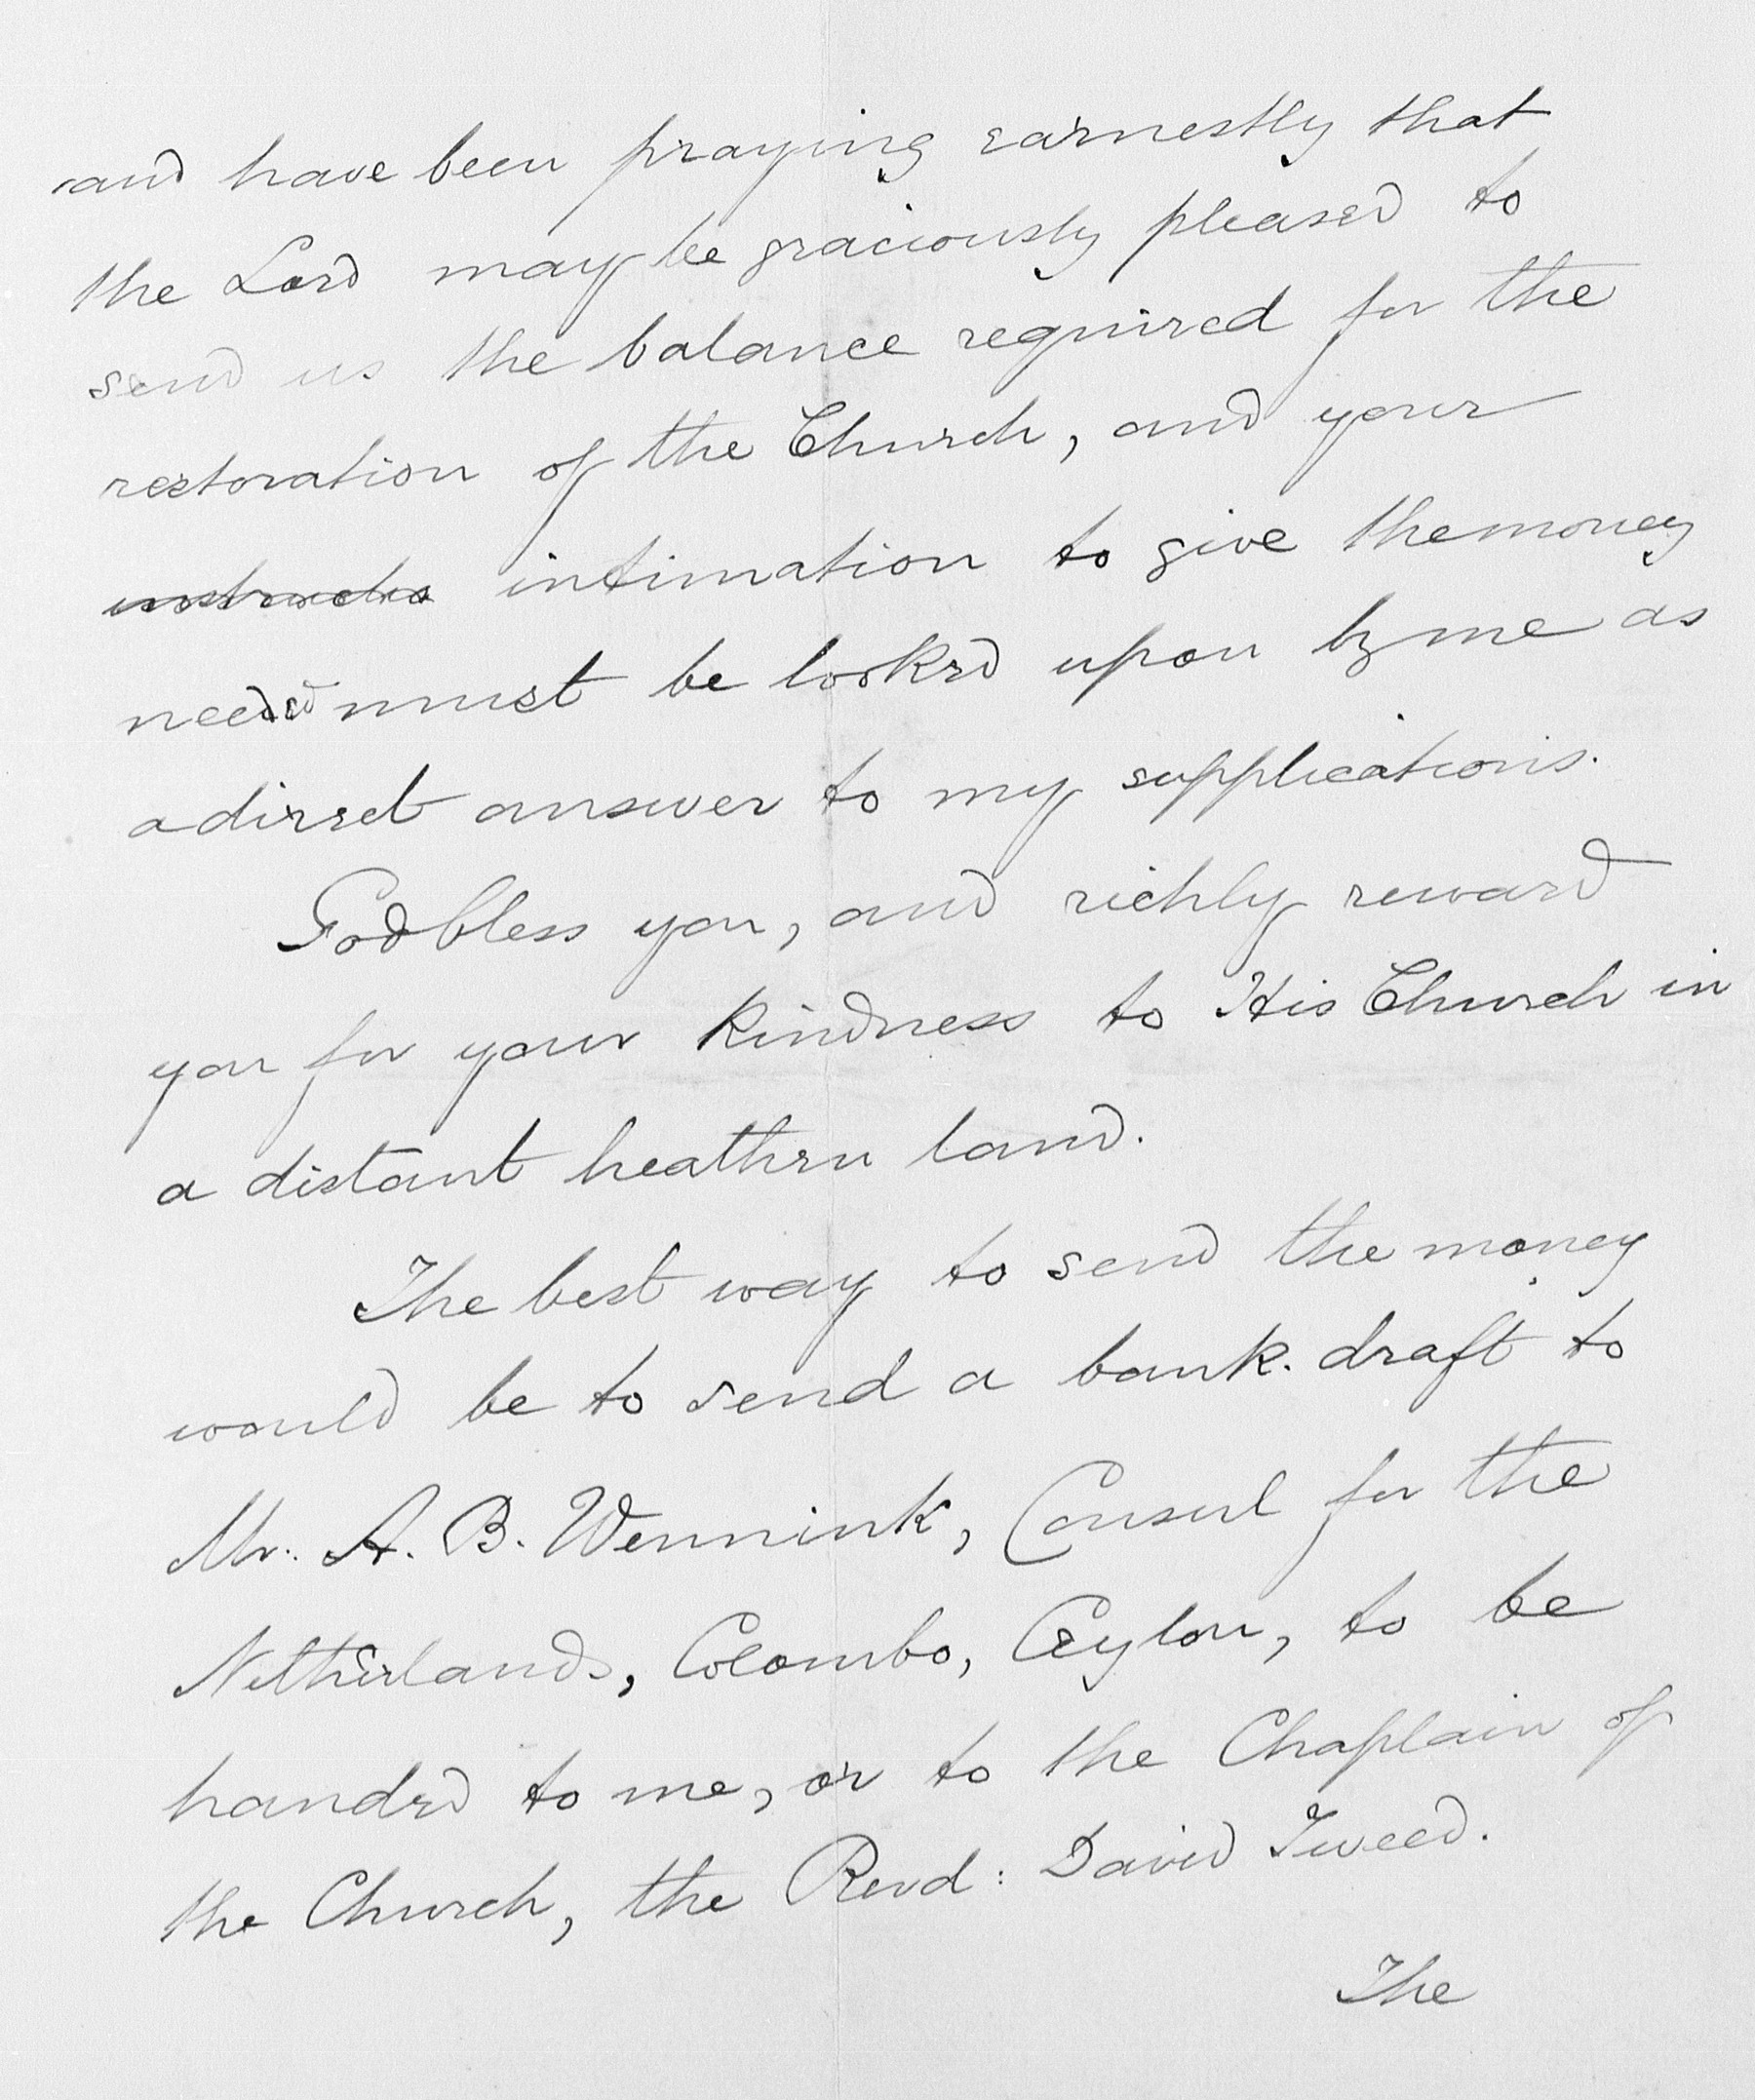 and have been praying earnestly that
the Lord may be graciously pleased to
send us the balance required for the
restoration of the Church, and your
intimation to give the money
needed must be looked upon by me as
a direct answer to my supplications.
God bless you, and richly reward
you for your kindness to His Church in
a distant heathen land.
The best way to send the money
would be to send a bank draft to
Mr. A. B. Wennink, Consul for the
Netherlands, Colombo, Ceylon, to be
handed to me, or to the Chaplain of
the Church, the Revd: David Tweed.
The